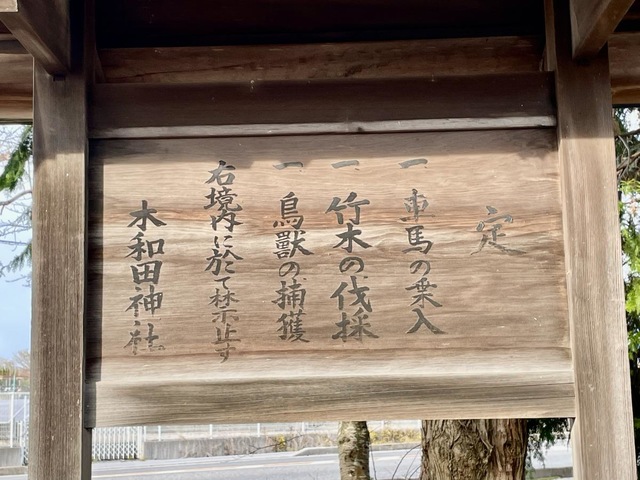 定
一 車馬の乗入
一 竹木の伐採
一 鳥獣の捕獲
右境内に於て禁止す
木和田神社